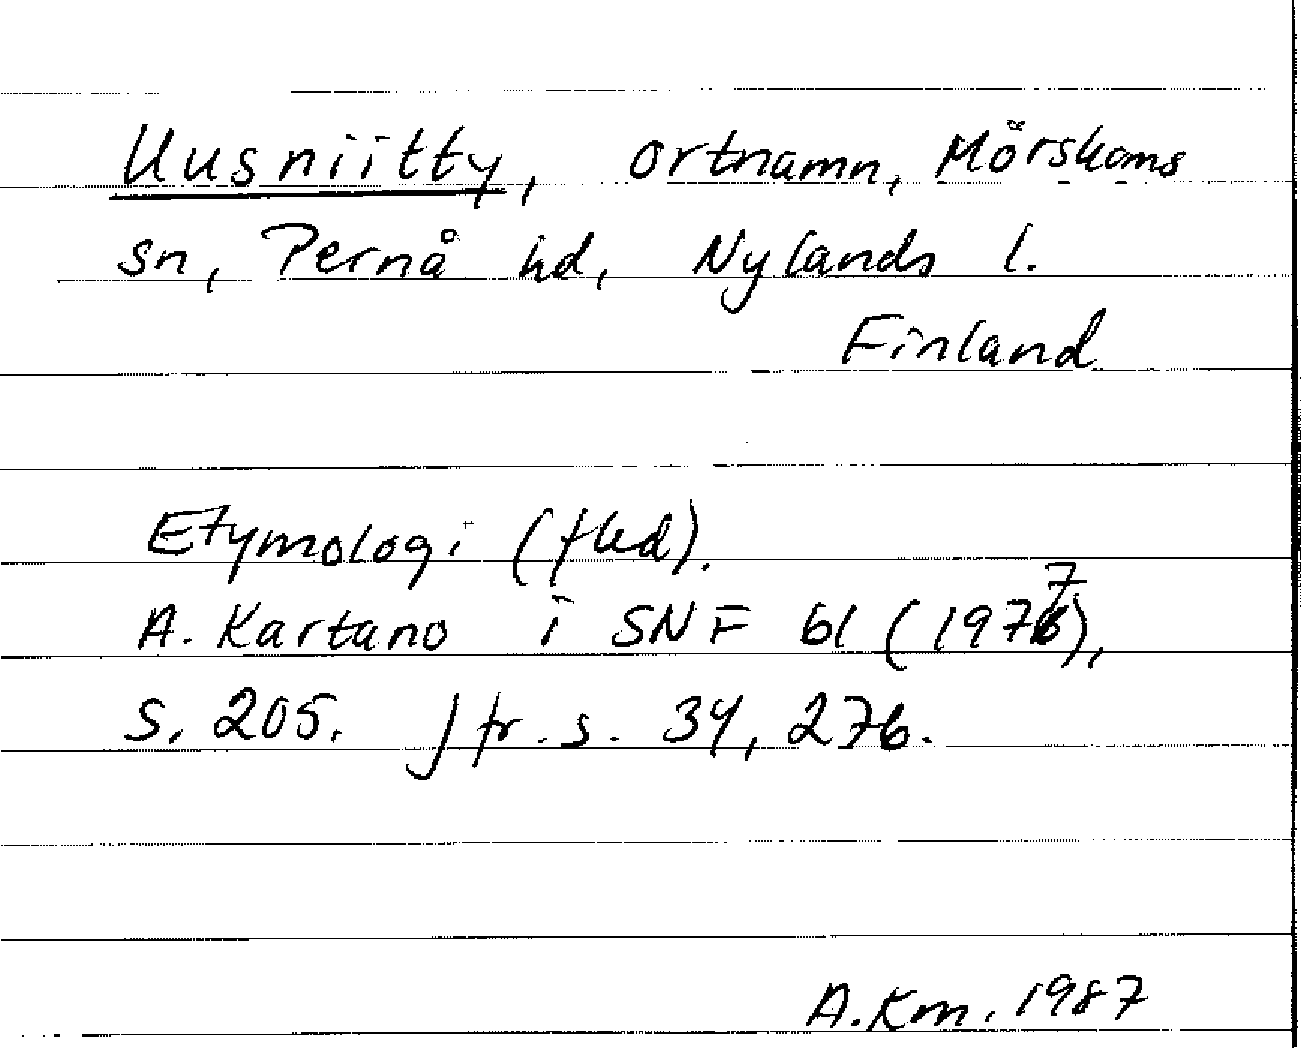 Uusniitty, ortnamn, Mörskoms
sn, Pernå hd, Nylands l.
Finland
Etymologi (fled).
A. Kartano i SNF 61 (1977),
s. 205. Jfr. s. 34, 276.
A.Km. 1987